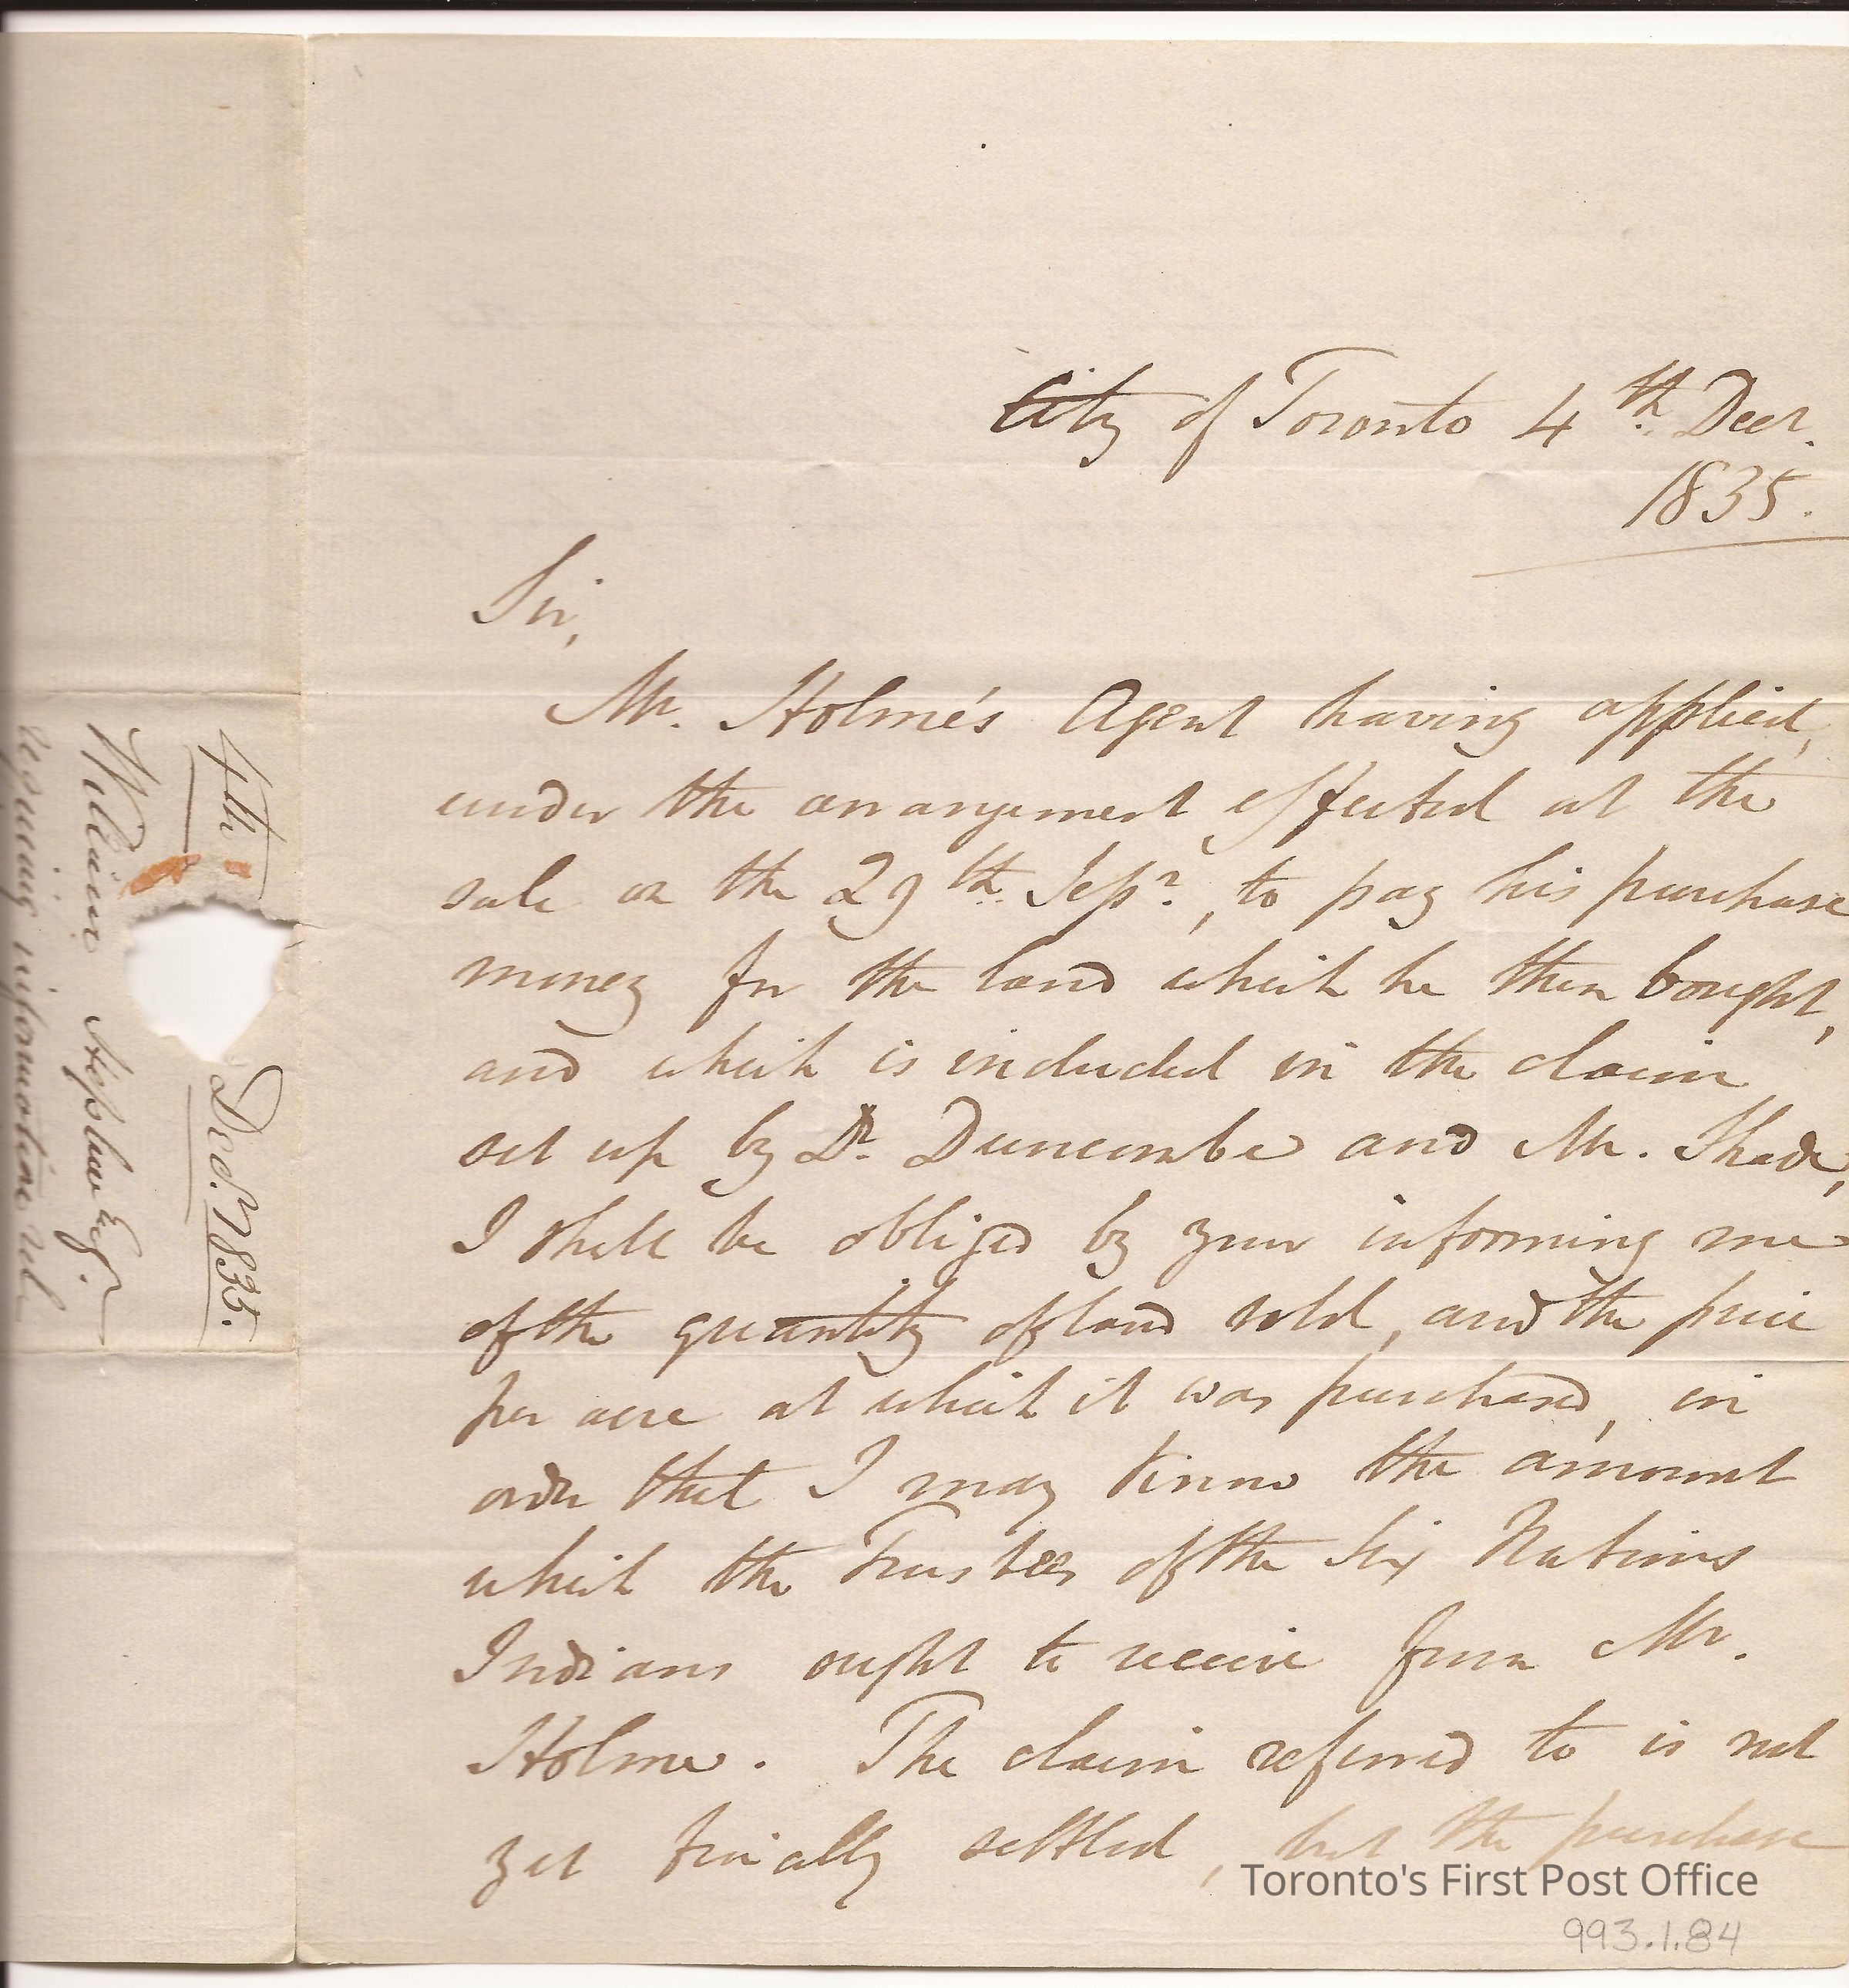 City of Toronto 4th. Decr.
1835.
Sir,
Mr. Holme's Agent having applied,
under the arrangement effected at the
sale on the 29th. Sepr., to pay his purchase
money for the land which he then bought,
and which is included in the claim
set up by Dr. Duncombe and Mr. Shade,
I shall be obliged by your informing me
of the quantity of land sold, and the price
per acre at which it was purchased, in
order that I may know the amount
which the Trustees of the Six Nations
Indians ought to receive from Mr.
Holme. The claim referred to is not
yet finally settled, but the purchase
Toronto's First Post Office
993.1.84
4th Decr. 1835.
William Hepburn Esq.
requiring information rel